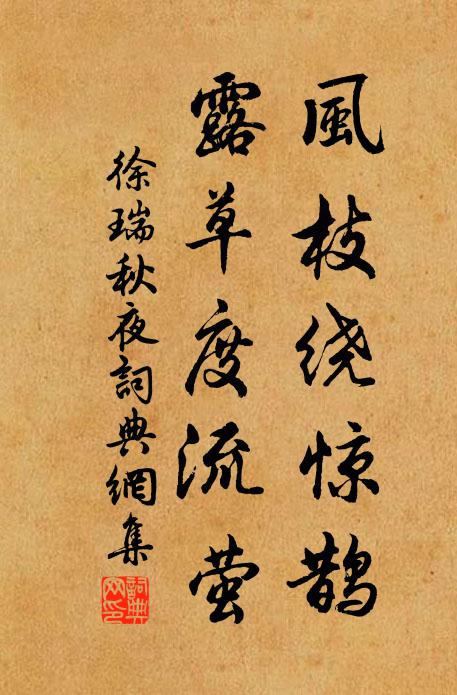 風枝绕惊鹊
露草度流萤
徐瑞秋夜詞典網集
詞典
网印